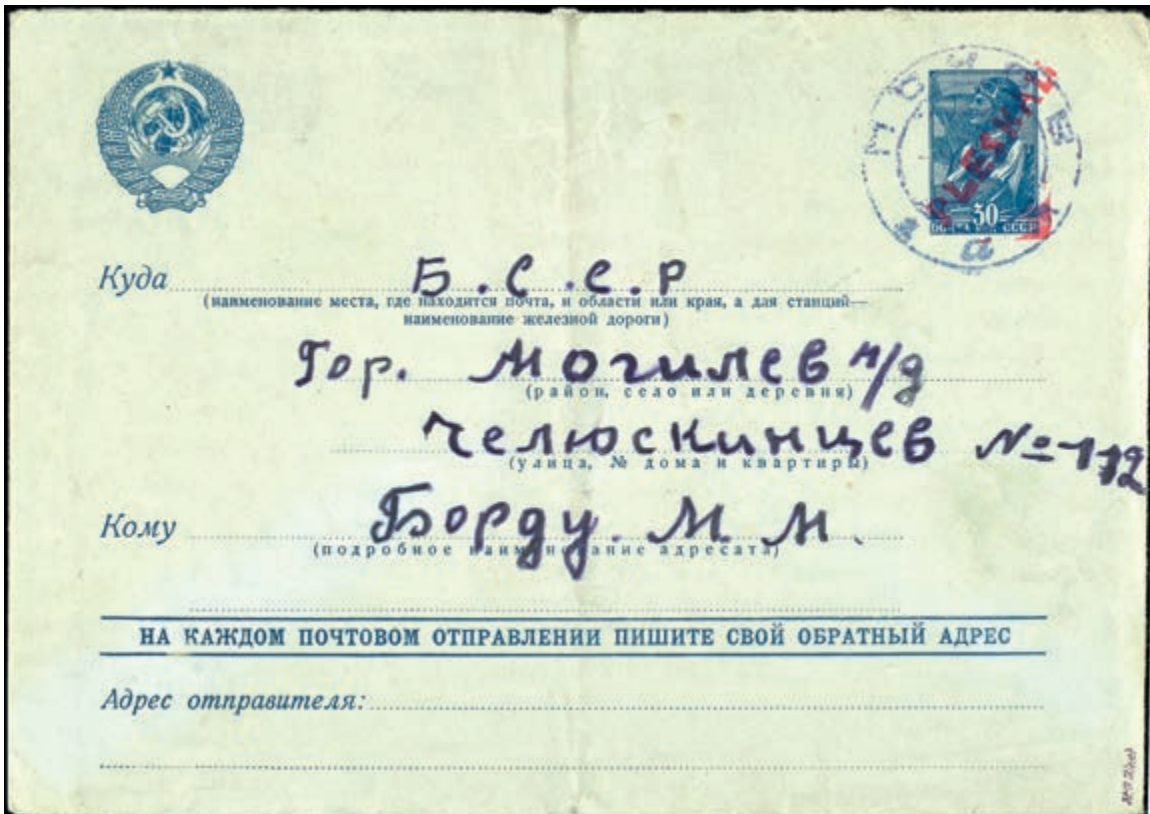 PLESKAU
30
ПОЧТА СССР
Куда Б.С.С.Р
(наименование места, где находится почта, и области или края, а для станций—
наименование железной дороги)
Гор. Могилев н/д
(район, село или деревня)
Челюскинцев № 112
(улица, № дома и квартиры)
Кому Борду. М. М.
(подробное наименование адресата)
НА КАЖДОМ ПОЧТОВОМ ОТПРАВЛЕНИИ ПИШИТЕ СВОЙ ОБРАТНЫЙ АДРЕС
Адрес отправителя: